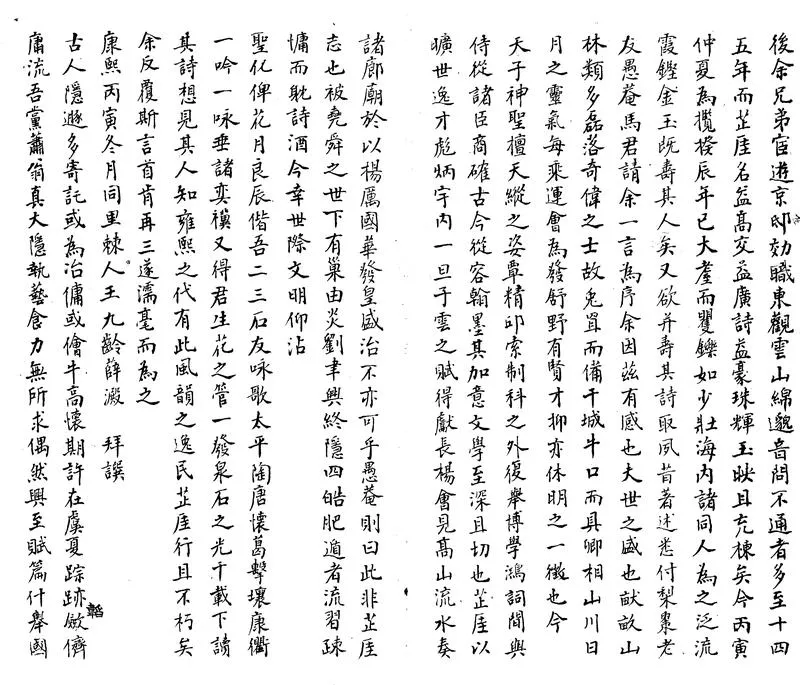 後余兄弟宦遊京邸効職東觀雲山綿邈音問不通者多至十四
五年而芷厓名益高交益廣詩益豪珠輝玉映且充棟矣今丙寅
仲夏為攬揆辰年已大耋而矍鑠如少壯海內諸同人為之泛流
霞鏗金玉既壽其人矣又欲并壽其詩取夙昔著述悉付梨棗老
友愚菴馬君請余一言為序余因茲有感也大世之盛也畎畝山
林類多磊落奇偉之士故兎罝而備干城牛口而具卿相山川日
月之靈氣每乘運會為發舒野有賢才抑亦休明之一徵也今
天子神聖擅天縱之姿覃精邱索制科之外復舉博學鴻詞間與
侍從諸臣商確古今從容翰墨其加意文學至深且切也芷厓以
曠世逸才彪炳宇內一旦子雲之賦得獻長楊會見高山流水奏
諸廊廟於以楊厲國華發皇盛治不亦可乎愚菴則曰此非芷厓
志也被堯舜之世下有巢由炎劉聿興終隱四皓肥遁者流習疎
慵而耽詩酒今幸世際文明仰沾
聖化俾花月良辰偕吾二三石友咏歌太平陶唐懷葛擊壤康衢
一吟一咏垂諸奕禩又得君生花之管一發泉石之光千載下讀
其詩想見其人知雍熙之代有此風韻之逸民芷厓行且不朽矣
余反覆斯言首肯再三遂濡毫而為之
康熙丙寅冬月同里棘人王九齡薛澱 拜譔
古人隱遯多寄託或為冶傭或儈牛高懷期許在虞夏踪跡敛儕
韜
庸流吾黨蕭翁真大隱執藝食力無所求偶然興至賦篇什舉國